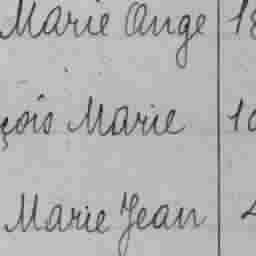 Marie Ange
çois Marie 10
Marie Jean